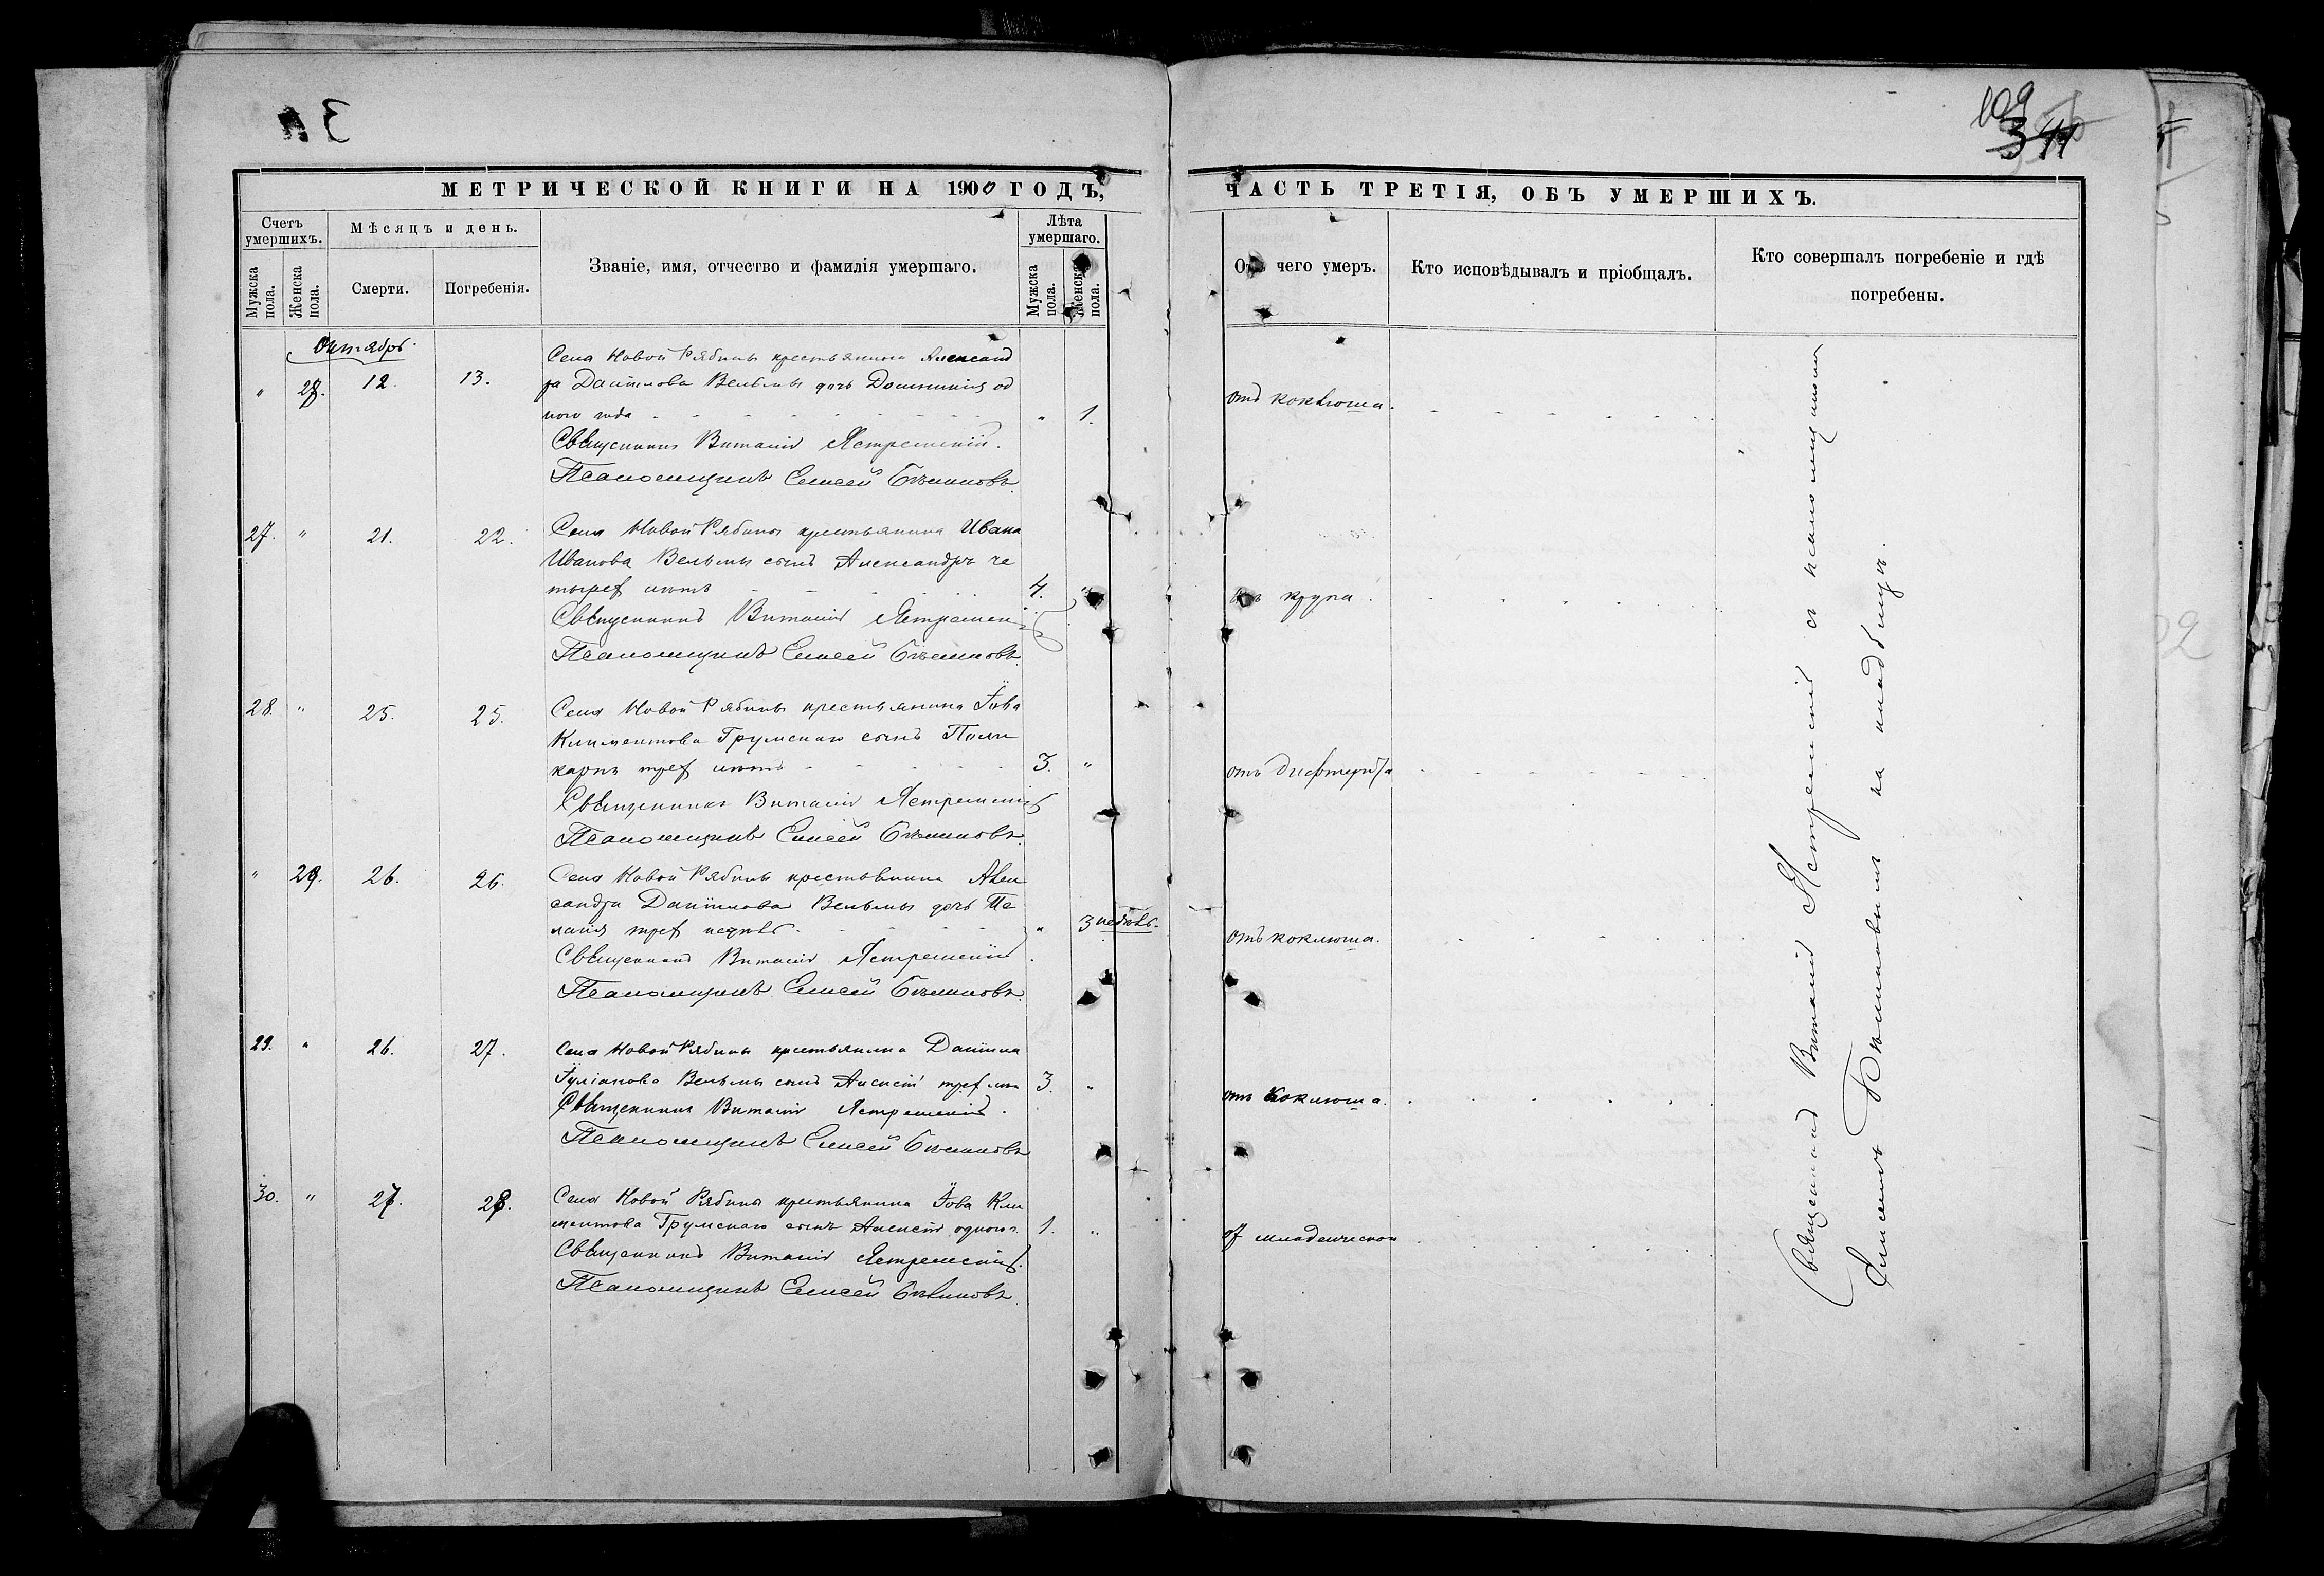 109
341
МЕТРИЧЕСКОЙ КНИГИ НА 1900 ГОДЪ,
ЧАСТЬ ТРЕТІЯ, ОБЪ УМЕРШИХЪ.
Счетъ умершихъ.
Мѣсяцъ и день.
Званіе, имя, отчество и фамилія умершаго.
Лѣта умершаго.
Мужска пола.
Женска пола.
Смерти.
Погребенія.
Мужска пола.
Женска пола.
Отъ чего умеръ.
Кто исповѣдывалъ и пріобщалъ.
Кто совершалъ погребеніе и гдѣ
погребены.
Октябрь
" 28. 12. 13. Села Новой Рябины крестьянина Александ
ра Даніилова Вельмы дочь Домникія од
ного года " 1. отъ коклюша.
Священникъ Виталій Ястремскій.
Псаломщикъ Елисей
27. " 21. 22. Села Новой Рябины крестьянина Ивана
Иванова Вельмы сынъ Александръ че
тырех лѣтъ 4. " отъ крупа.
Священникъ Виталій Ястремскій
Псаломщикъ Елисей
28. " 25. 25. Села Новой Рябины крестьянина Іова
Климентова Грумскаго сынъ Поли
карпъ трех лѣтъ 3. " отъ дифтерита
Священникъ Виталій Ястремскій
Псаломщикъ Елисей
" 29. 26. 26. Села Новой Рябины крестьянина Алек
сандра Даніилова Вельмы дочь Пе
лагія трех недѣль " 3 недѣль. отъ коклюша.
Священникъ Виталій Ястремскій.
Псаломщикъ Елисей
29. " 26. 27. Села Новой Рябины крестьянина Даніила
Іуліанова Вельмы сынъ Алексій трех лѣтъ 3. " отъ коклюша.
Священникъ Виталій Ястремскій.
Псаломщикъ Елисей
30. " 27. 28. Села Новой Рябины крестьянина Іова Кли
ментова Грумскаго сынъ Алексій одного г. 1. " от младенческой
Священникъ Виталій Ястремскій.
Псаломщикъ Елисей
Священникъ Виталій Ястремскій съ псаломщикомъ
на кладбищѣ.